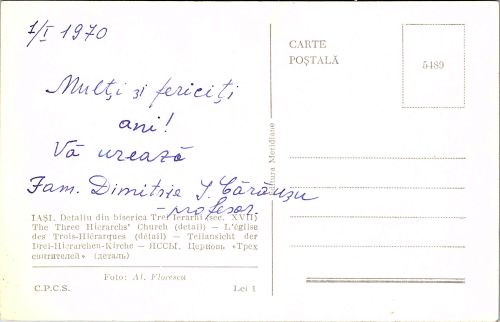 1/I 1970
Mulţi şi fericiţi
ani!
Vă urează
Fam. Dimitrie I. Cărăuşu
profesor
IAŞI. Detaliu din biserica Trei Ierarhi (sec. XVII)
The Three Hierarchs' Church (detail) — L'église
des Trois-Hiérarques (détail) — Teilansicht der
Drei-Hierarchen-Kirche — ЯССЫ. Церковь «Трех
святителей» (деталь)
Foto: Al. Florescu
C.P.C.S. Lei 1
Editura Meridiane
CARTE
POŞTALĂ
5489